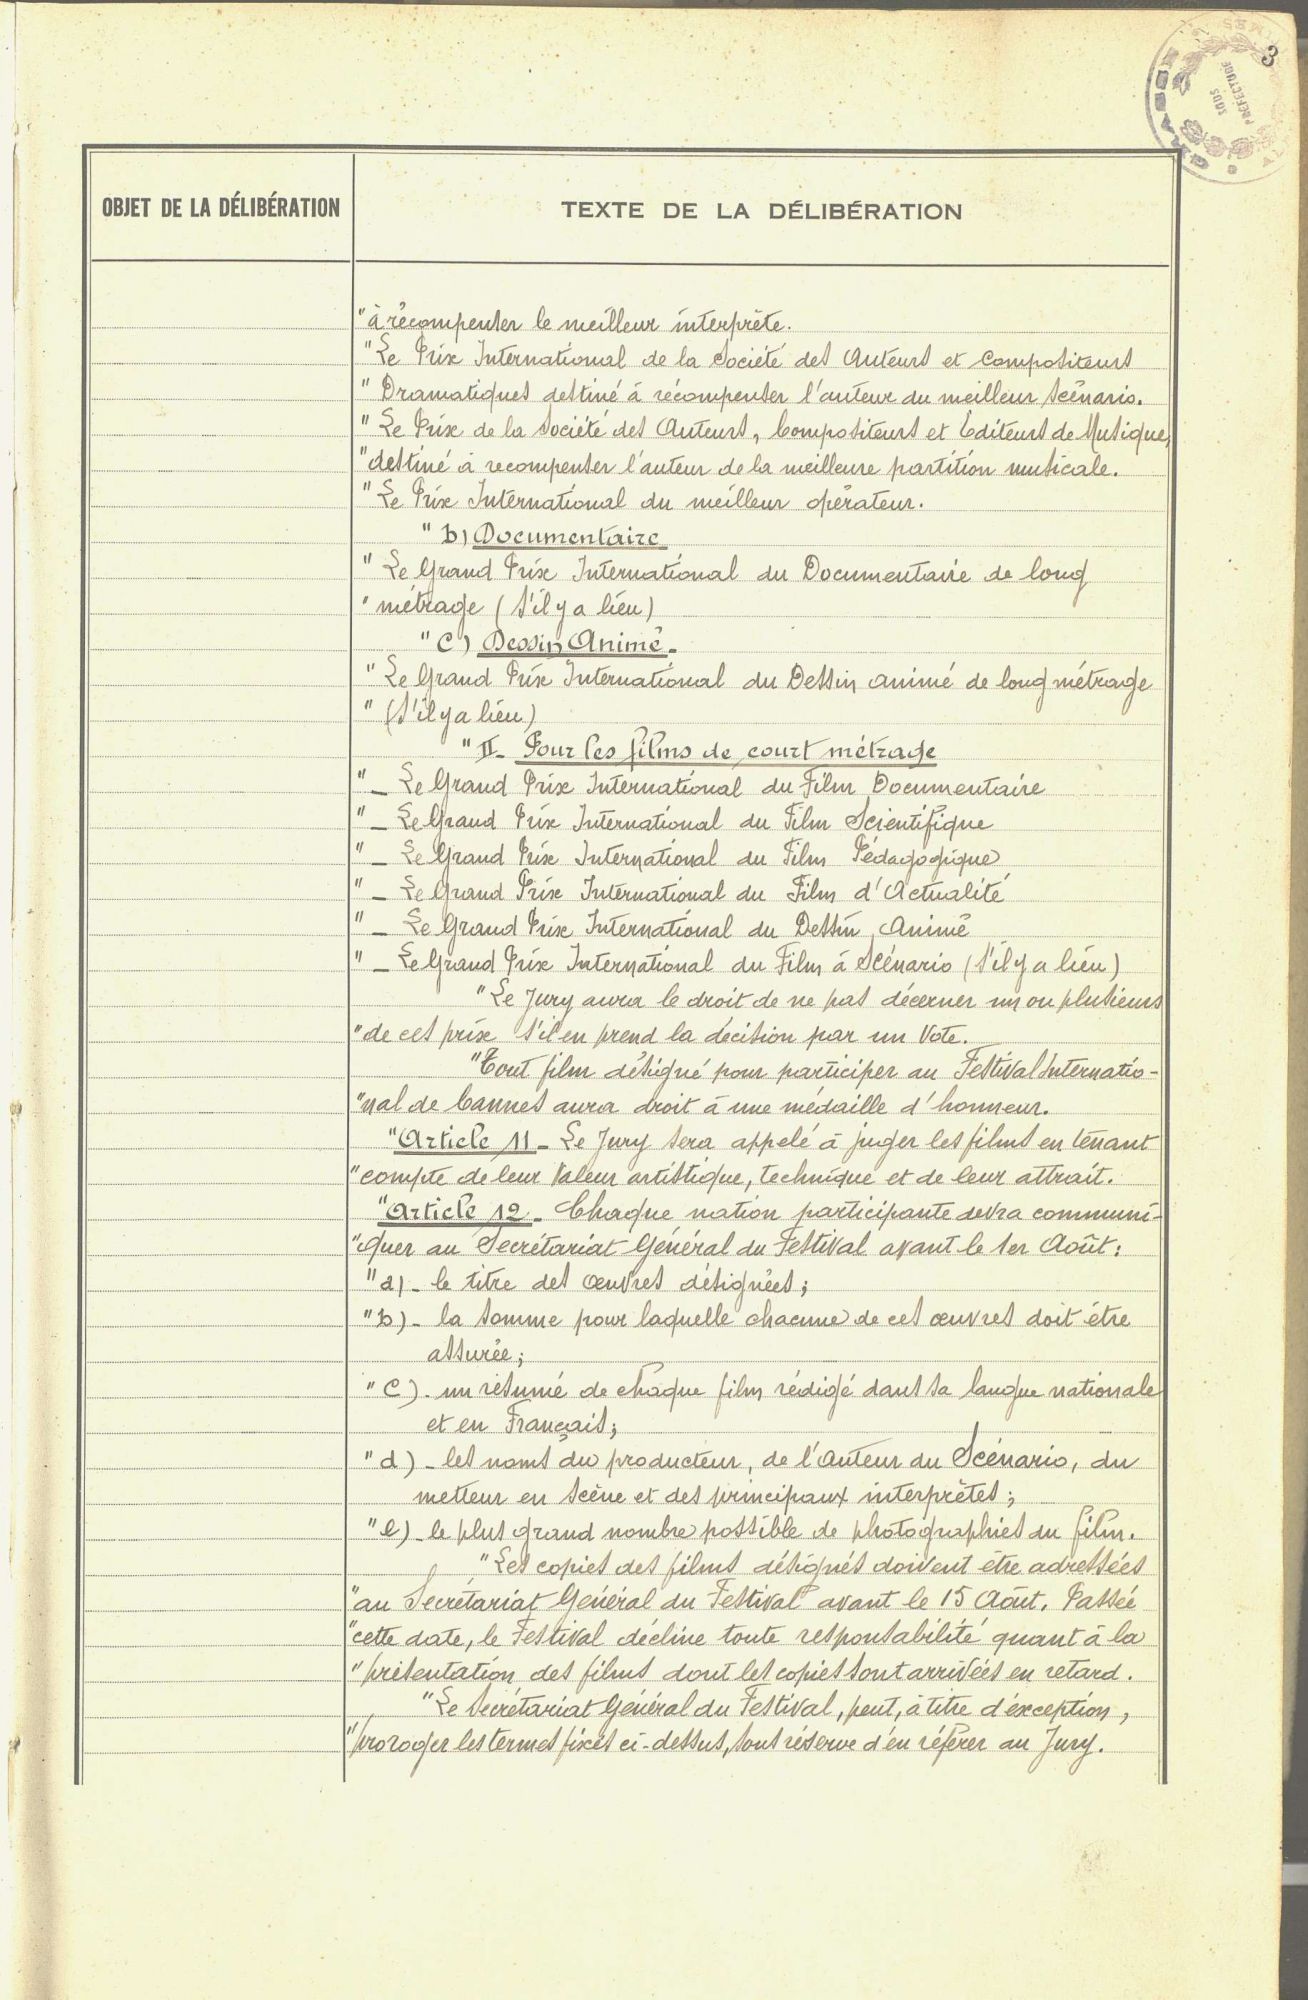 3
GRASSE
SOUS
PRÉFECTURE
OBJET DE LA DÉLIBÉRATION
TEXTE DE LA DÉLIBÉRATION
"à récompenser le meilleur interprète.
"Le Prix International de la Société des Auteurs et Compositeurs
"Dramatiques destiné à récompenser l'auteur du meilleur scénario.
"Le Prix de la Société des Auteurs, Compositeurs et Editeurs de Musique,
"destiné à recompenser l'auteur de la meilleure partition musicale.
"Le Prix International du meilleur opérateur.
"b) Documentaire
"Le Grand Prix International du Documentaire de long
"métrage (s'il y a lieu)
"c) Dessin Animé.
"Le Grand Prix International du Dessin animé de long métrage
"(s'il y a lieu)
"II- Pour les films de court métrage
"_ Le Grand Prix International du Film Documentaire
"_ Le Grand Prix International du Film Scientifique
"_ Le Grand Prix International du Film Pédagogique
"_ Le Grand Prix International du Film d'Actualité
"_ Le Grand Prix International du Dessin Animé
"_ Le Grand Prix International du Film à Scénario (s'il y a lieu)
"Le Jury aura le droit de ne pas décerner un ou plusieurs
"de ces prix s'il en prend la décision par un vote.
"Tout film désigné pour participer au Festival Internatio-
"nal de Cannes aura droit à une médaille d'honneur.
"Article 11_ Le Jury sera appelé à juger les films en tenant
"compte de leur valeur artistique, technique et de leur attrait.
"Article 12_ Chaque nation participante devra communi-
"quer au Secrétariat Général du Festival avant le 1er Août:
"a)_ le titre des œuvres désignées;
"b)_ la somme pour laquelle chacune de ces œuvres doit être
assurée;
"c)_ un résumé de chaque film rédigé dans sa langue nationale
et en Français;
"d)_ les noms du producteur, de l'auteur du Scénario, du
metteur en scène et des principaux interprètes;
"e)_ le plus grand nombre possible de photographies du film.
"Les copies des films désignés doivent être adressées
"au Secrétariat Général du Festival avant le 15 Août. Passée
"cette date, le Festival décline toute responsabilité quant à la
"présentation des films dont les copies sont arrivées en retard.
"Le Secrétariat Général du Festival, peut, à titre d'exception,
"proroger les termes fixés ci-dessus, sous réserve d'en référer au Jury.